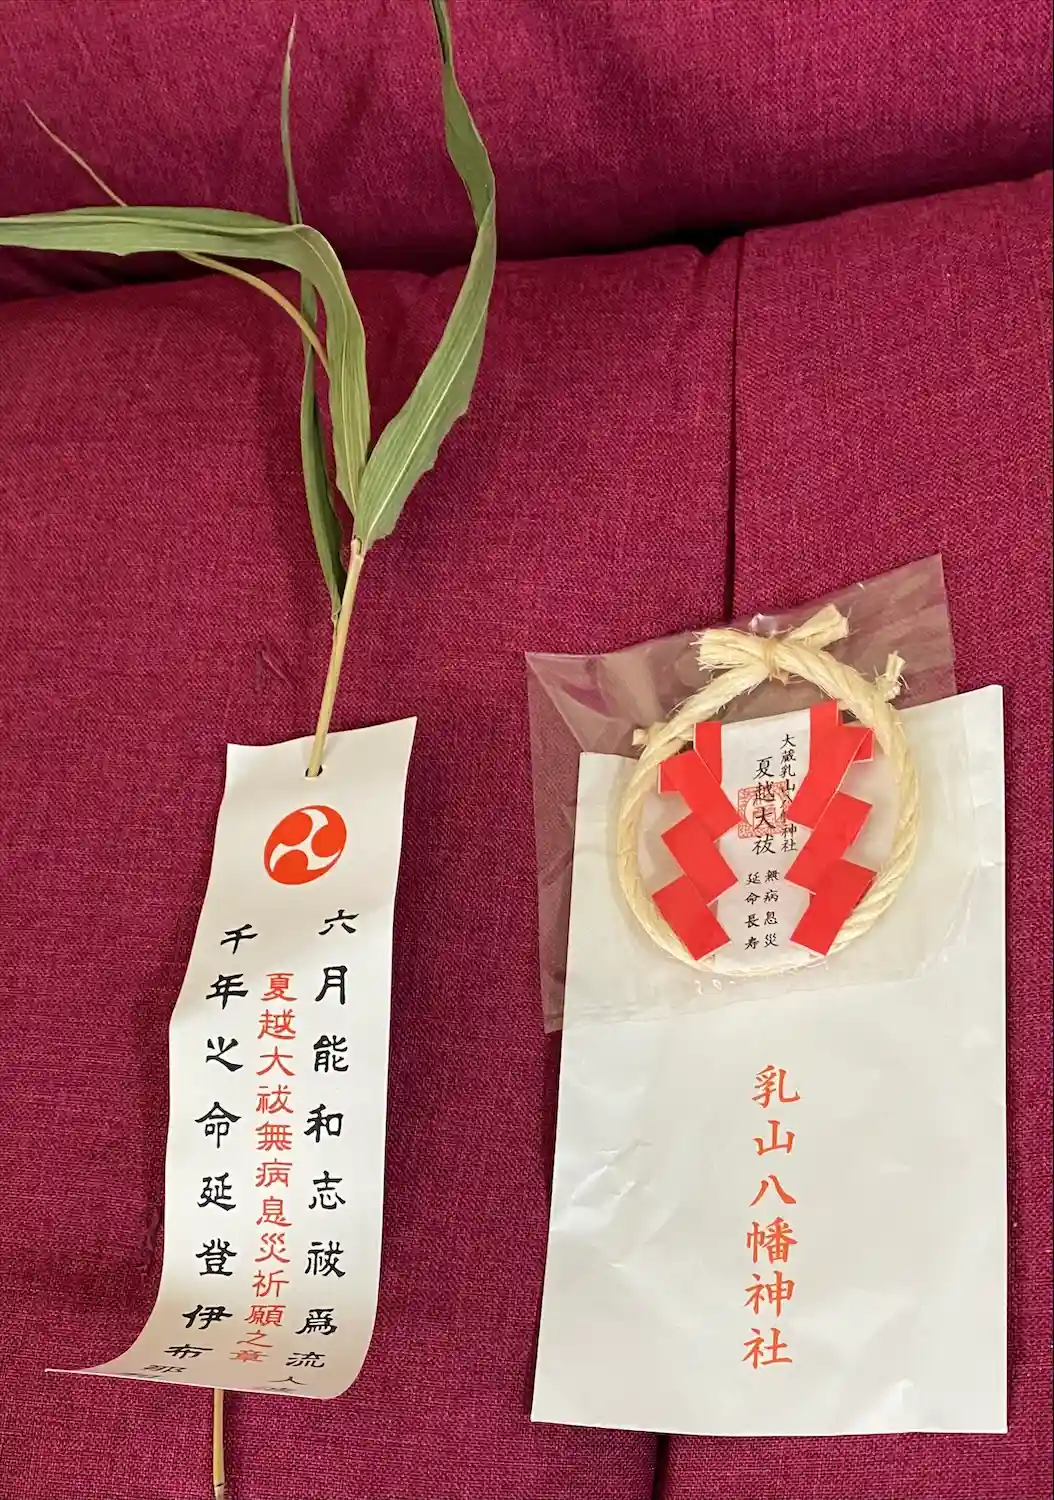 六月能和志祓爲流人
夏越大祓無病息災祈願之章
千年之命延登伊布
大蔵乳山八幡神社
夏越大祓
無病息災
延命長寿
乳山八幡神社